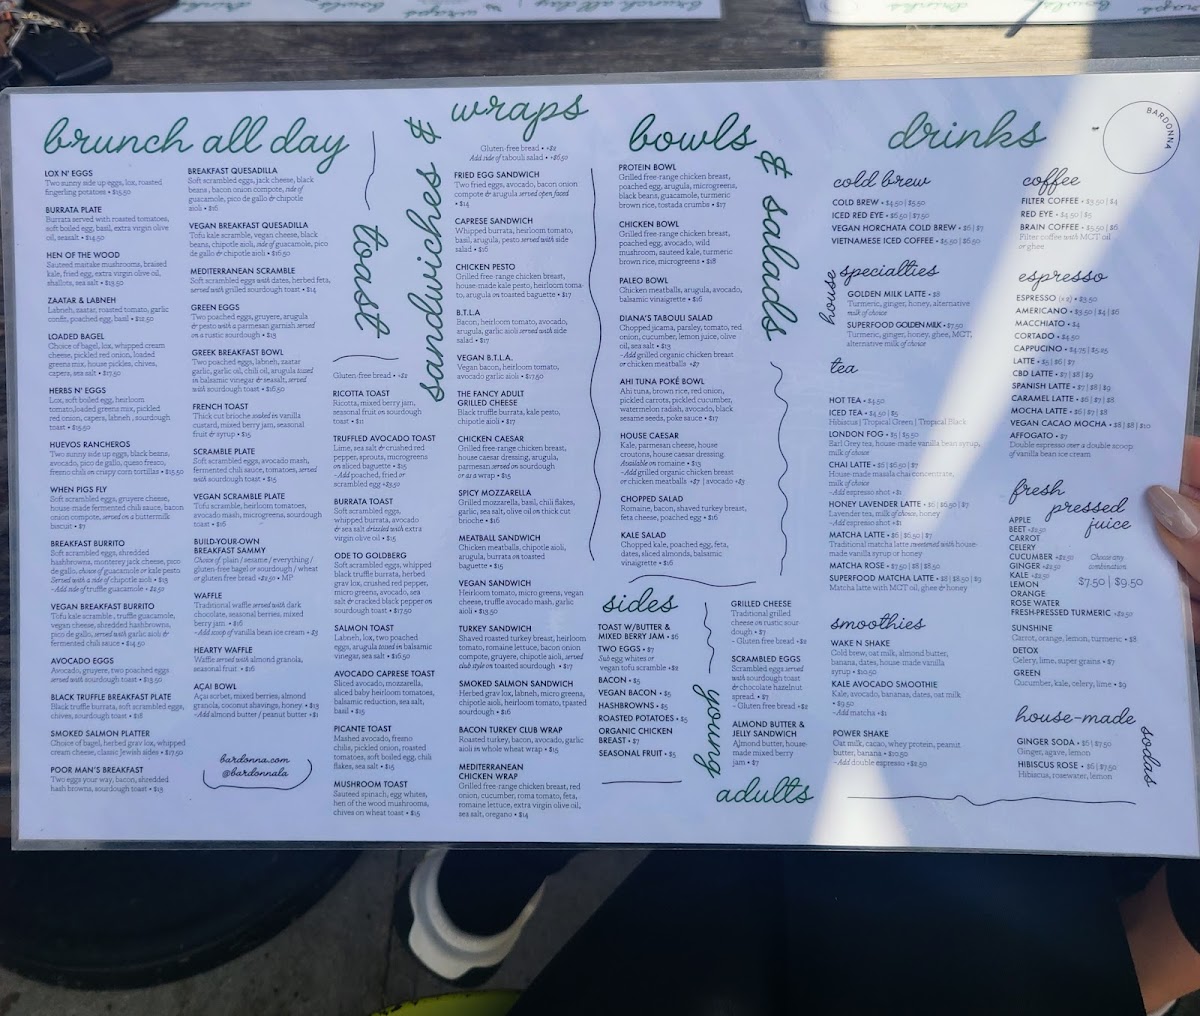 brunch all day
LOX N' EGGS
Two sunny side up eggs, lox, roasted
fingerling potatoes • $15.50
BURRATA PLATE
Burrata served with roasted tomatoes,
soft boiled egg, basil, extra virgin olive
oil, seasalt • $14.50
HEN OF THE WOOD
Sauteed maitake mushrooms, braised
kale, fried egg, extra virgin olive oil,
shallots, sea salt • $13.50
ZAATAR & LABNEH
Labneh, zaatar, roasted tomato, garlic
confit, poached egg, basil • $12.50
LOADED BAGEL
Choice of bagel, lox, whipped cream
cheese, pickled red onion, loaded
greens mix, house pickles, chives,
capers, sea salt • $17.50
HERBS N' EGGS
Lox, soft boiled egg, heirloom
tomato, loaded greens mix, pickled
red onion, capers, labneh, sourdough
toast • $15.50
HUEVOS RANCHEROS
Two sunny side up eggs, black beans,
avocado, pico de gallo, queso fresco,
fresno chili on crispy corn tortillas • $15.50
WHEN PIGS FLY
Soft scrambled eggs, gruyere cheese,
house-made fermented chili sauce, bacon
onion compote, served on a buttermilk
biscuit • $7
BREAKFAST BURRITO
Soft scrambled eggs, shredded
hashbrowns, monterey jack cheese, pico
de gallo, choice of guacamole or kale pesto
Served with a side of chipotle aioli • $13
-Add side of truffle guacamole • $2.50
VEGAN BREAKFAST BURRITO
Tofu kale scramble, truffle guacamole,
vegan cheese, shredded hashbrowns,
pico de gallo, served with garlic aioli &
fermented chili sauce • $14.50
AVOCADO EGGS
Avocado, gruyere, two poached eggs
served with sourdough toast • $13.50
BLACK TRUFFLE BREAKFAST PLATE
Black truffle burrata, soft scrambled eggs,
chives, sourdough toast • $18
SMOKED SALMON PLATTER
Choice of bagel, herbed grav lox, whipped
cream cheese, classic Jewish sides • $17.50
POOR MAN'S BREAKFAST
Two eggs your way, bacon, shredded
hash browns, sourdough toast • $15
BREAKFAST QUESADILLA
Soft scrambled eggs, jack cheese, black
beans, bacon onion compote, side of
guacamole, pico de gallo & chipotle
aioli • $16
VEGAN BREAKFAST QUESADILLA
Tofu kale scramble, vegan cheese, black
beans, chipotle aioli, side of guacamole, pico
de gallo & chipotle aioli • $16.50
MEDITERRANEAN SCRAMBLE
Soft scrambled eggs with dates, herbed feta,
served with grilled sourdough toast • $14
GREEN EGGS
Two poached eggs, gruyere, arugula
& pesto with a parmesan garnish served
on a rustic sourdough • $15
GREEK BREAKFAST BOWL
Two poached eggs, labneh, zaatar
garlic, garlic oil, chili oil, arugula tossed
in balsamic vinegar & seasalt, served
with sourdough toast • $16.50
FRENCH TOAST
Thick cut brioche soaked in vanilla
custard, mixed berry jam, seasonal
fruit & syrup • $15
SCRAMBLE PLATE
Soft scrambled eggs, avocado mash,
fermented chili sauce, tomatoes, served
with sourdough toast • $15
VEGAN SCRAMBLE PLATE
Tofu scramble, heirloom tomatoes,
avocado mash, microgreens, sourdough
toast • $16
BUILD-YOUR-OWN
BREAKFAST SAMMY
Choice of plain / sesame / everything /
gluten-free bagel or sourdough / wheat
or gluten free bread +$2.50 • MP
WAFFLE
Traditional waffle served with dark
chocolate, seasonal berries, mixed
berry jam • $16
-Add scoop of vanilla bean ice cream • $3
HEARTY WAFFLE
Waffle served with almond granola,
seasonal fruit • $16
AÇAI BOWL
Açai sorbet, mixed berries, almond
granola, coconut shavings, honey • $13
-Add almond butter / peanut butter +$1
bardonna.com
@bardonnala
toast
Gluten-free bread • +$2
RICOTTA TOAST
Ricotta, mixed berry jam,
seasonal fruit on sourdough
toast • $11
TRUFFLED AVOCADO TOAST
Lime, sea salt & crushed red
pepper, sprouts, microgreens
on sliced baguette • $15
-Add poached, fried or
scrambled egg +$3.50
BURRATA TOAST
Soft scrambled eggs,
whipped burrata, avocado
& sea salt drizzled with extra
virgin olive oil • $15
ODE TO GOLDBERG
Soft scrambled eggs, whipped
black truffle burrata, herbed
grav lox, crushed red pepper,
micro greens, avocado, sea
salt & cracked black pepper on
sourdough toast • $17.50
SALMON TOAST
Labneh, lox, two poached
eggs, arugula tossed in balsamic
vinegar, sea salt • $16.50
AVOCADO CAPRESE TOAST
Sliced avocado, mozzarella,
sliced baby heirloom tomatoes,
balsamic reduction, sea salt,
basil • $15
PICANTE TOAST
Mashed avocado, fresno
chilis, pickled onion, roasted
tomatoes, soft boiled egg, chili
flakes, sea salt • $15
MUSHROOM TOAST
Sauteed spinach, egg whites,
hen of the wood mushrooms,
chives on wheat toast • $15
sandwiches & wraps
Gluten-free bread • +$2
Add side of tabouli salad • +$6.50
FRIED EGG SANDWICH
Two fried eggs, avocado, bacon onion
compote & arugula served open faced
• $14
CAPRESE SANDWICH
Whipped burrata, heirloom tomato,
basil, arugula, pesto served with side
salad • $16
CHICKEN PESTO
Grilled free-range chicken breast,
house-made kale pesto, heirloom toma-
to, arugula on toasted baguette • $17
B.T.L.A
Bacon, heirloom tomato, avocado,
arugula, garlic aioli served with side
salad • $17
VEGAN B.T.L.A.
Vegan bacon, heirloom tomato,
avocado garlic aioli • $17.50
THE FANCY ADULT
GRILLED CHEESE
Black truffle burrata, kale pesto,
chipotle aioli • $17
CHICKEN CAESAR
Grilled free-range chicken breast,
house caesar dressing, arugula,
parmesan served on sourdough
or as a wrap • $15
SPICY MOZZARELLA
Grilled mozzarella, basil, chili flakes,
garlic, sea salt, olive oil on thick cut
brioche • $16
MEATBALL SANDWICH
Chicken meatballs, chipotle aioli,
arugula, burrata on toasted
baguette • $15
VEGAN SANDWICH
Heirloom tomato, micro greens, vegan
cheese, truffle avocado mash, garlic
aioli • $13.50
TURKEY SANDWICH
Shaved roasted turkey breast, heirloom
tomato, romaine lettuce, bacon onion
compote, gruyere, chipotle aioli, served
club style on toasted sourdough • $17
SMOKED SALMON SANDWICH
Herbed grav lox, labneh, micro greens,
chipotle aioli, heirloom tomato, tpasted
sourdough • $16
BACON TURKEY CLUB WRAP
Roasted turkey, bacon, avocado, garlic
aioli in whole wheat wrap • $15
MEDITERRANEAN
CHICKEN WRAP
Grilled free-range chicken breast, red
onion, cucumber, roma tomato, feta,
romaine lettuce, extra virgin olive oil,
sea salt, oregano • $14
bowls & salads
PROTEIN BOWL
Grilled free-range chicken breast,
poached egg, arugula, microgreens,
black beans, guacamole, turmeric
brown rice, tostada crumbs • $17
CHICKEN BOWL
Grilled free-range chicken breast,
poached egg, avocado, wild
mushroom, sauteed kale, turmeric
brown rice, microgreens • $18
PALEO BOWL
Chicken meatballs, arugula, avocado,
balsamic vinaigrette • $16
DIANA'S TABOULI SALAD
Chopped jicama, parsley, tomato, red
onion, cucumber, lemon juice, olive
oil, sea salt • $13
-Add grilled organic chicken breast
or chicken meatballs +$7
AHI TUNA POKÉ BOWL
Ahi tuna, brown rice, red onion,
pickled carrots, pickled cucumber,
watermelon radish, avocado, black
sesame seeds, poke sauce • $17
HOUSE CAESAR
Kale, parmesan cheese, house
croutons, house caesar dressing
Available on romaine • $13
-Add grilled organic chicken breast
or chicken meatballs +$7 | avocado +$3
CHOPPED SALAD
Romaine, bacon, shaved turkey breast,
feta cheese, poached egg • $16
KALE SALAD
Chopped kale, poached egg, feta,
dates, sliced almonds, balsamic
vinaigrette • $16
sides
TOAST W/BUTTER &
MIXED BERRY JAM • $6
TWO EGGS • $7
Sub egg whites or
vegan tofu scramble +$2
BACON • $5
VEGAN BACON • $5
HASHBROWNS • $5
ROASTED POTATOES • $5
ORGANIC CHICKEN
BREAST • $7
SEASONAL FRUIT • $5
young adults
GRILLED CHEESE
Traditional grilled
cheese on rustic sour
dough • $7
- Gluten-free bread +$2
SCRAMBLED EGGS
Scrambled eggs served
with sourdough toast
& chocolate hazelnut
spread. • $7
- Gluten-free bread +$2
ALMOND BUTTER &
JELLY SANDWICH
Almond butter, house-
made mixed berry
jam • $7
drinks
BARDONNA
cold brew
COLD BREW • $4.50 | $5.50
ICED RED EYE • $6.50 | $7.50
VEGAN HORCHATA COLD BREW • $6 | $7
VIETNAMESE ICED COFFEE • $5.50 | $6.50
house specialties
GOLDEN MILK LATTE • $8
Turmeric, ginger, honey, alternative
milk of choice
SUPERFOOD GOLDEN MILK • $7.50
Turmeric, ginger, honey, ghee, MCT,
alternative milk of choice
tea
HOT TEA • $4.50
ICED TEA • $4.50 | $5
Hibiscus | Tropical Green | Tropical Black
LONDON FOG • $5 | $5.50
Earl Grey tea, house made vanilla bean syrup,
milk of choice
CHAI LATTE • $6 | $6.50 | $7
House-made masala chai concentrate,
milk of choice
-Add espresso shot +$1
HONEY LAVENDER LATTE • $6 | $6.50 | $7
Lavender tea, milk of choice, honey
-Add espresso shot +$1
MATCHA LATTE • $6 | $6.50 | $7
Traditional matcha latte sweetened with house-
made vanilla syrup or honey
MATCHA ROSE • $7.50 | $8 | $8.50
SUPERFOOD MATCHA LATTE • $8 | $8.50 | $9
Matcha latte with MCT oil, ghee & honey
smoothies
WAKE N SHAKE
Cold brew, oat milk, almond butter,
banana, dates, house-made vanilla
syrup • $10.50
KALE AVOCADO SMOOTHIE
Kale, avocado, bananas, dates, oat milk
• $9.50
-Add matcha +$1
POWER SHAKE
Oat milk, cacao, whey protein, peanut
butter, banana • $10.50
-Add double espresso +$1.50
coffee
FILTER COFFEE • $3.50 | $4
RED EYE • $4.50 | $5
BRAIN COFFEE • $5.50 | $6
Filter coffee with MCT oil
or ghee
espresso
ESPRESSO (x 2) • $3.50
AMERICANO • $3.50 | $4 | $5
MACCHIATO • $4
CORTADO • $4.50
CAPPUCINO • $4.75 | $5.25
LATTE • $5 | $6 | $7
CBD LATTE • $7 | $8 | $9
SPANISH LATTE • $7 | $8 | $9
CARAMEL LATTE • $6 | $7 | $8
MOCHA LATTE • $6 | $7 | $8
VEGAN CACAO MOCHA • $6 | $8 | $10
AFFOGATO • $7
Double espresso over a double scoop
of vanilla bean ice cream
fresh pressed juice
APPLE
BEET +$2.50
CARROT
CELERY
CUCUMBER +$2.50
GINGER +$2.50
KALE +$2.50
LEMON
ORANGE
ROSE WATER
FRESH-PRESSED TURMERIC +$2.50
Choose any
combination
$7.50 | $9.50
SUNSHINE
Carrot, orange, lemon, turmeric • $8
DETOX
Celery, lime, super grains • $7
GREEN
Cucumber, kale, celery, lime • $9
house-made sodas
GINGER SODA • $6 | $7.50
Ginger, agave, lemon
HIBISCUS ROSE • $6 | $7.50
Hibiscus, rosewater, lemon